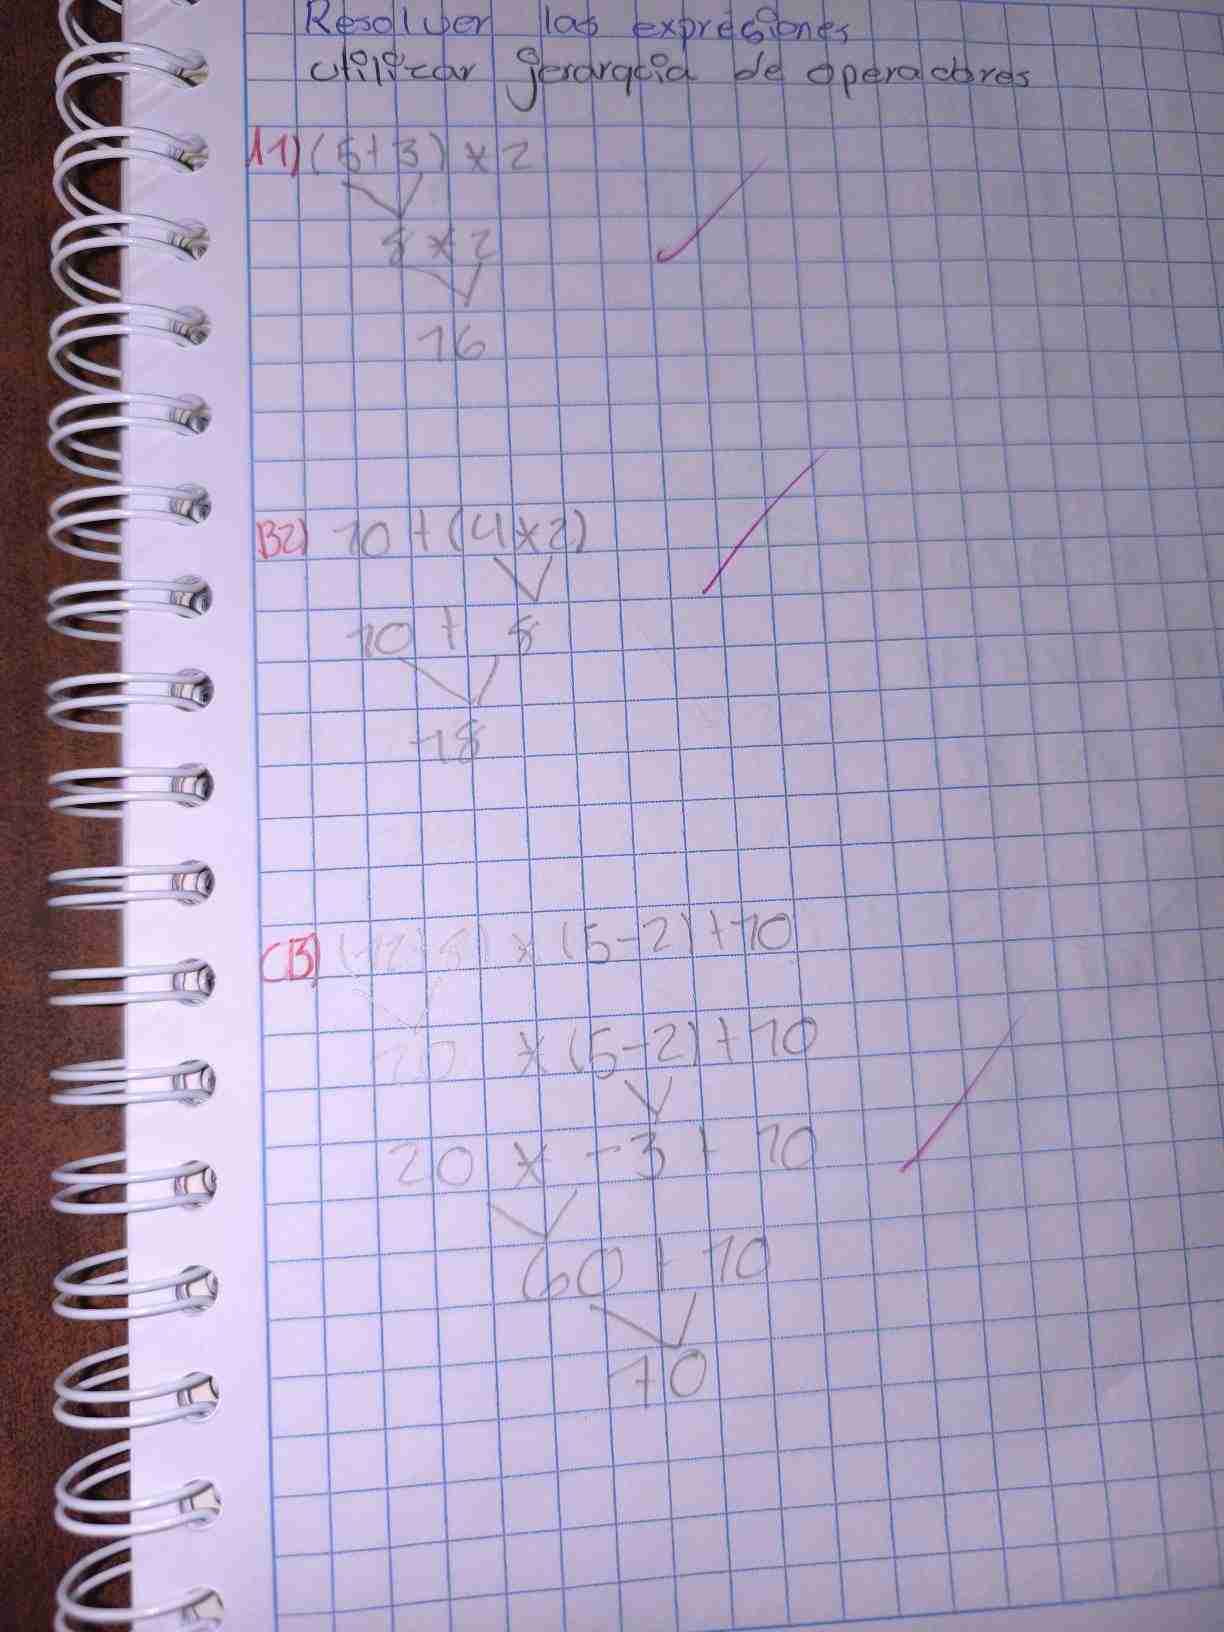 Resolver las expresiones
utilizar jerarqcia de operadores
A1) (5+3) * 2
8 * 2
16
B2) 10 + (4*2)
10 + 8
18
C3) (12+8) * (5-2)+10
20 * (5-2)+10
20 * -3 + 10
60 + 10
70